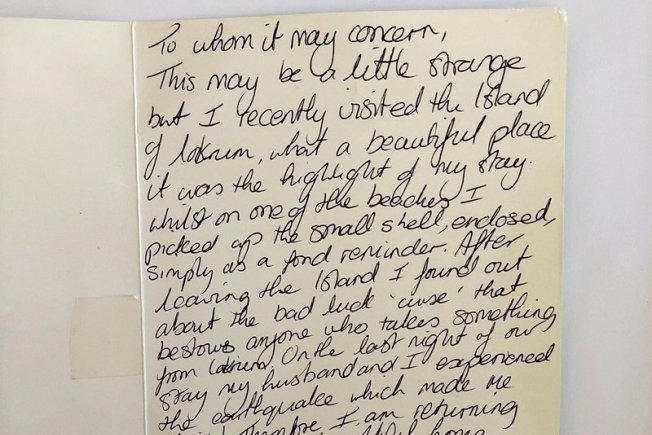 To whom it may concern,
This may be a little strange
but I recently visited the Island
of lokrum, what a beautiful place
it was the highlight of my stay.
whilst on one of the beaches I
picked up the small shell, enclosed,
simply as a fond reminder. After
leaving the Island I found out
about the bad luck 'curse' that
bestows anyone who takes something
from Lokrum. On the last night of our
stay my husband and I experienced
the earthquake which made me
Therefore I am returning